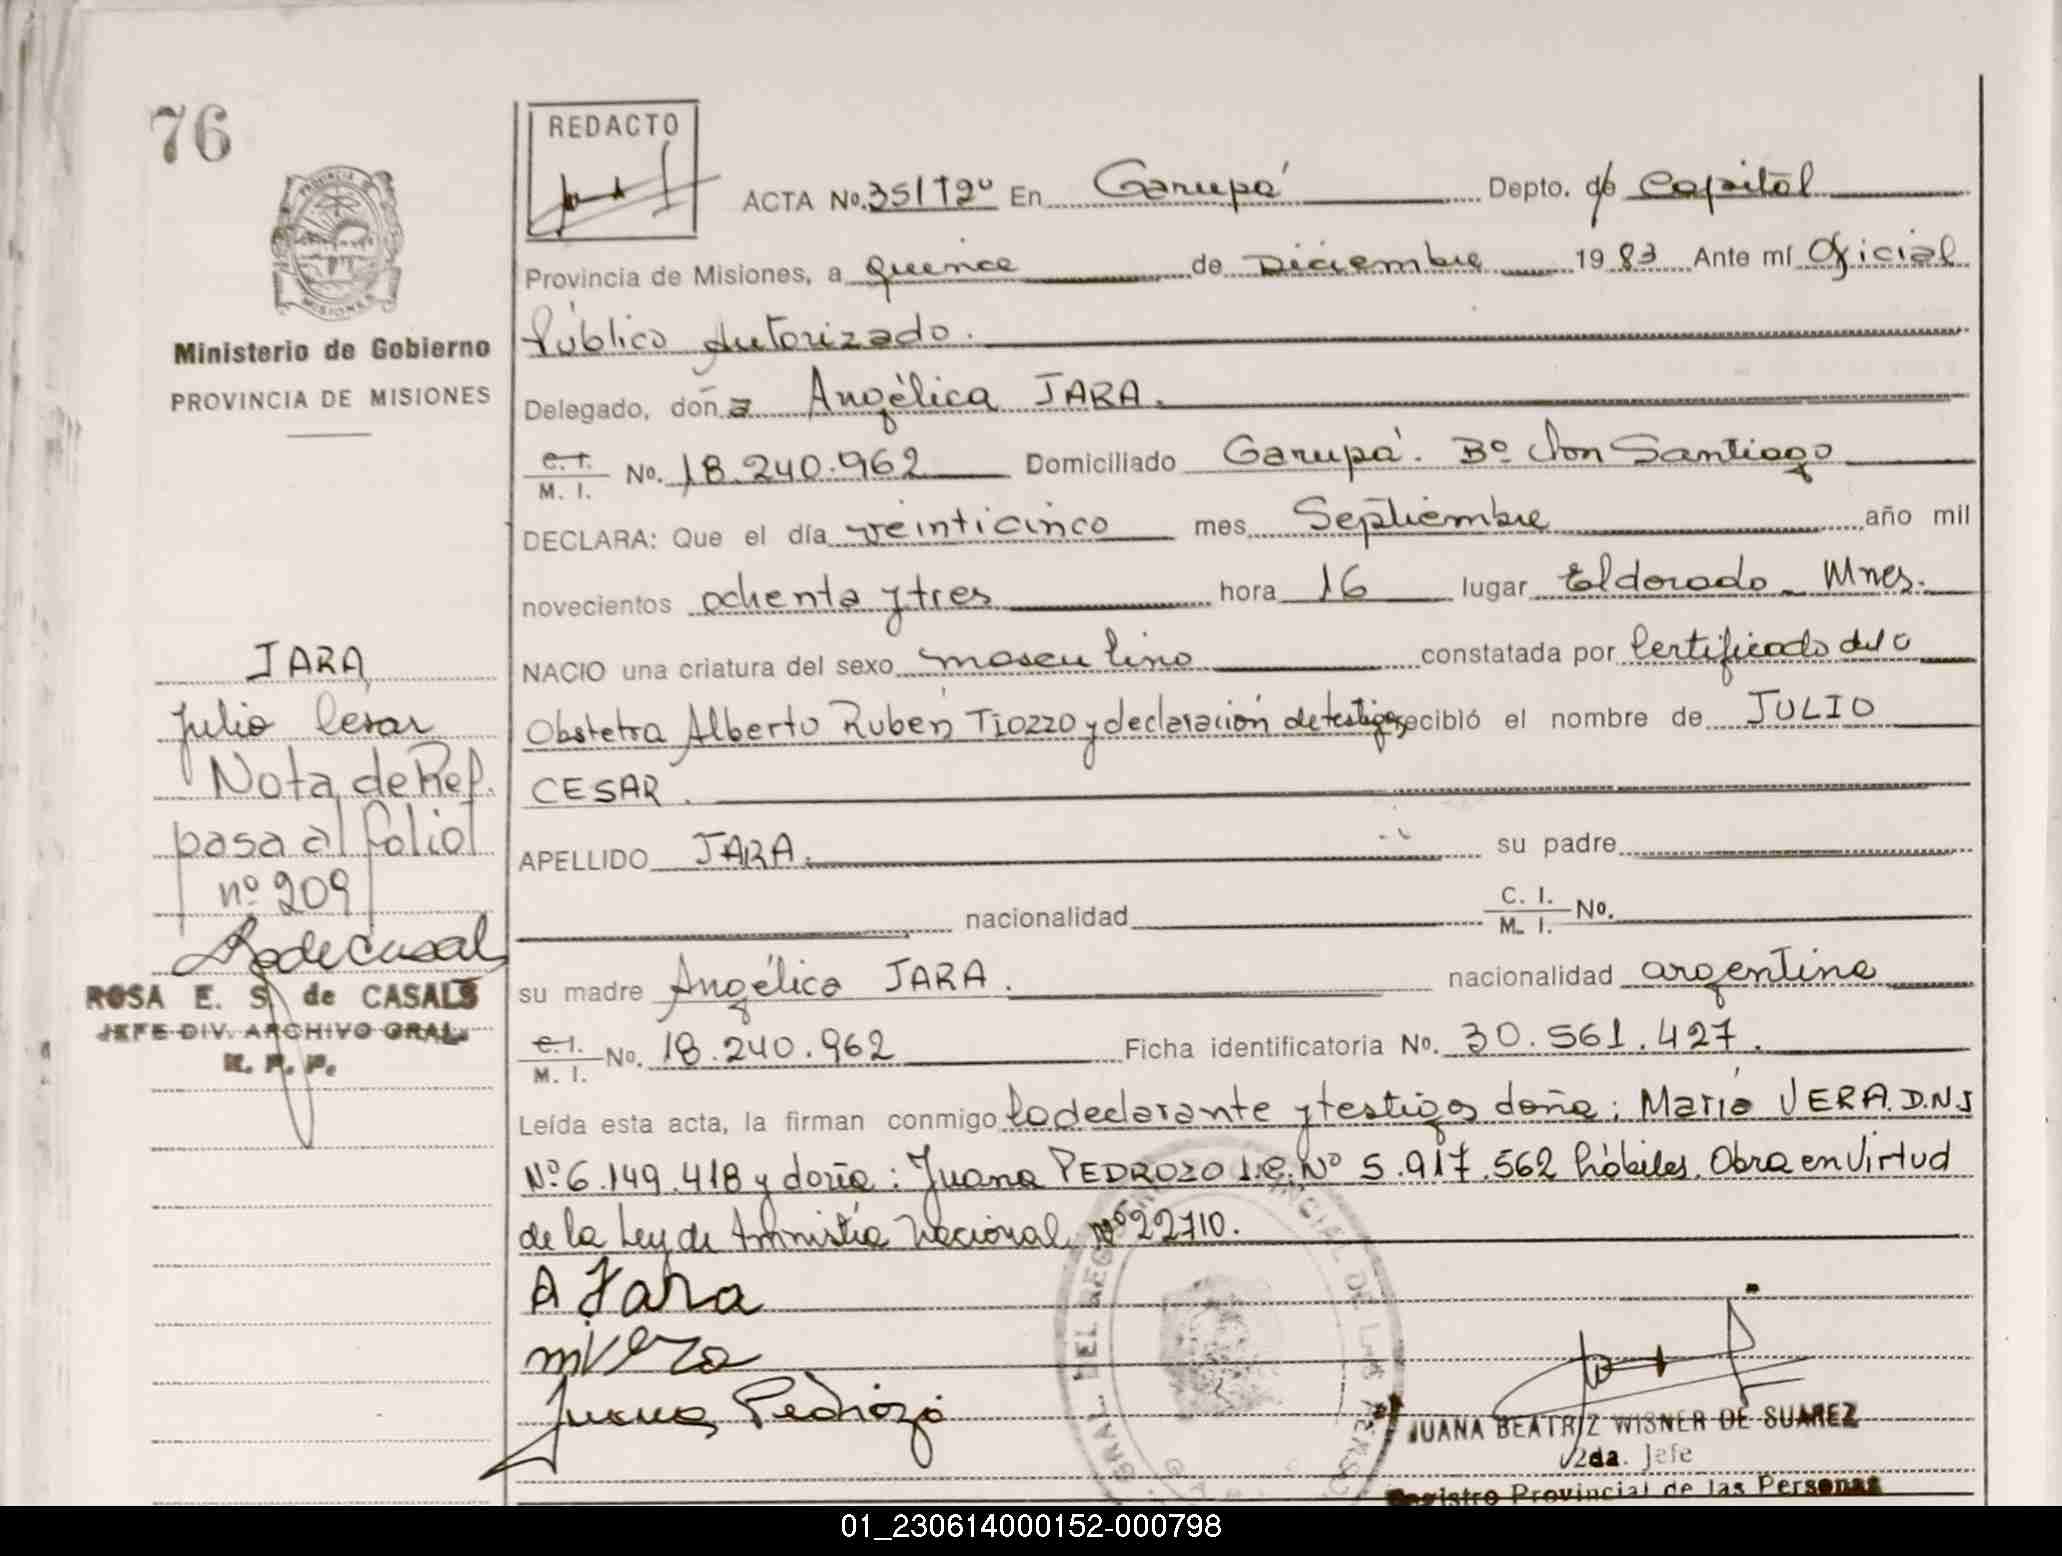 76
REDACTO
ACTA No. 35/T2º En Garupá Depto. de Capital
Provincia de Misiones, a quince de Diciembre 1983 Ante mí Oficial
Público Autorizado.
PROVINCIA DE MISIONES
Ministerio de Gobierno
PROVINCIA DE MISIONES
Delegado, doña Angélica JARA.
C. I. M. I. No. 18.240.962 Domiciliado Garupá. Bº Don Santiago
DECLARA: Que el día veinticinco mes Septiembre año mil
novecientos ochenta y tres hora 16 lugar Eldorado - Mnes.
NACIO una criatura del sexo masculino constatada por Certificado del
Obstetra Alberto Rubén TIOZZO y declaración de testigos recibió el nombre de JULIO
CESAR.
APELLIDO JARA. su padre
nacionalidad C. I. M. I. No.
su madre Angélica JARA. nacionalidad argentina
C. I. M. I. No. 18.240.962 Ficha identificatoria No. 30.561.427.
Leída esta acta, la firman conmigo la declarante y testigos doña: María VERA. D.N.I
Nº 6.149.418 y doña: Juana PEDROZO L.C. Nº 5.917.562 hábiles. Obra en Virtud
de la Ley de Amnistía Nacional Nº 22710.
A Jara
m Vera
Juana Pedrozo
JARA
Julio Cesar
Nota de Ref.
pasa al folio
nº 209
ROSA E. S. de CASALS
JEFE DIV. ARCHIVO GRAL.
R. P. P.
GRAL. DEL REG PROVINCIAL DE LAS PERSO
JUANA BEATRIZ WISNER DE SUAREZ
2da. Jefe
Registro Provincial de las Personas
01_230614000152-000798